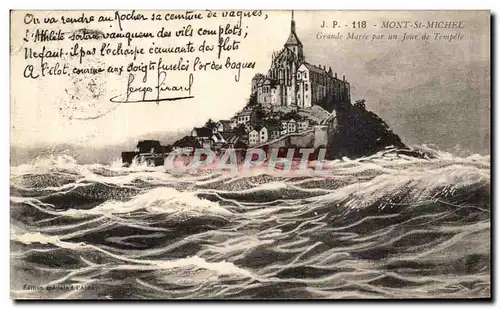 J. P. - 118 - MONT-St-MICHEL
Grande Marée par un Jour de Tempête
On va rendre au Rocher sa ceinture de vagues,
L'Athlète vainqueur des vils complots;
Ne faut-il pas l'écharpe écumante des flots
A l'îlot, comme aux doigts fuselés l'or des bagues
CARTPHILE
Edition spéciale à l'Abbaye